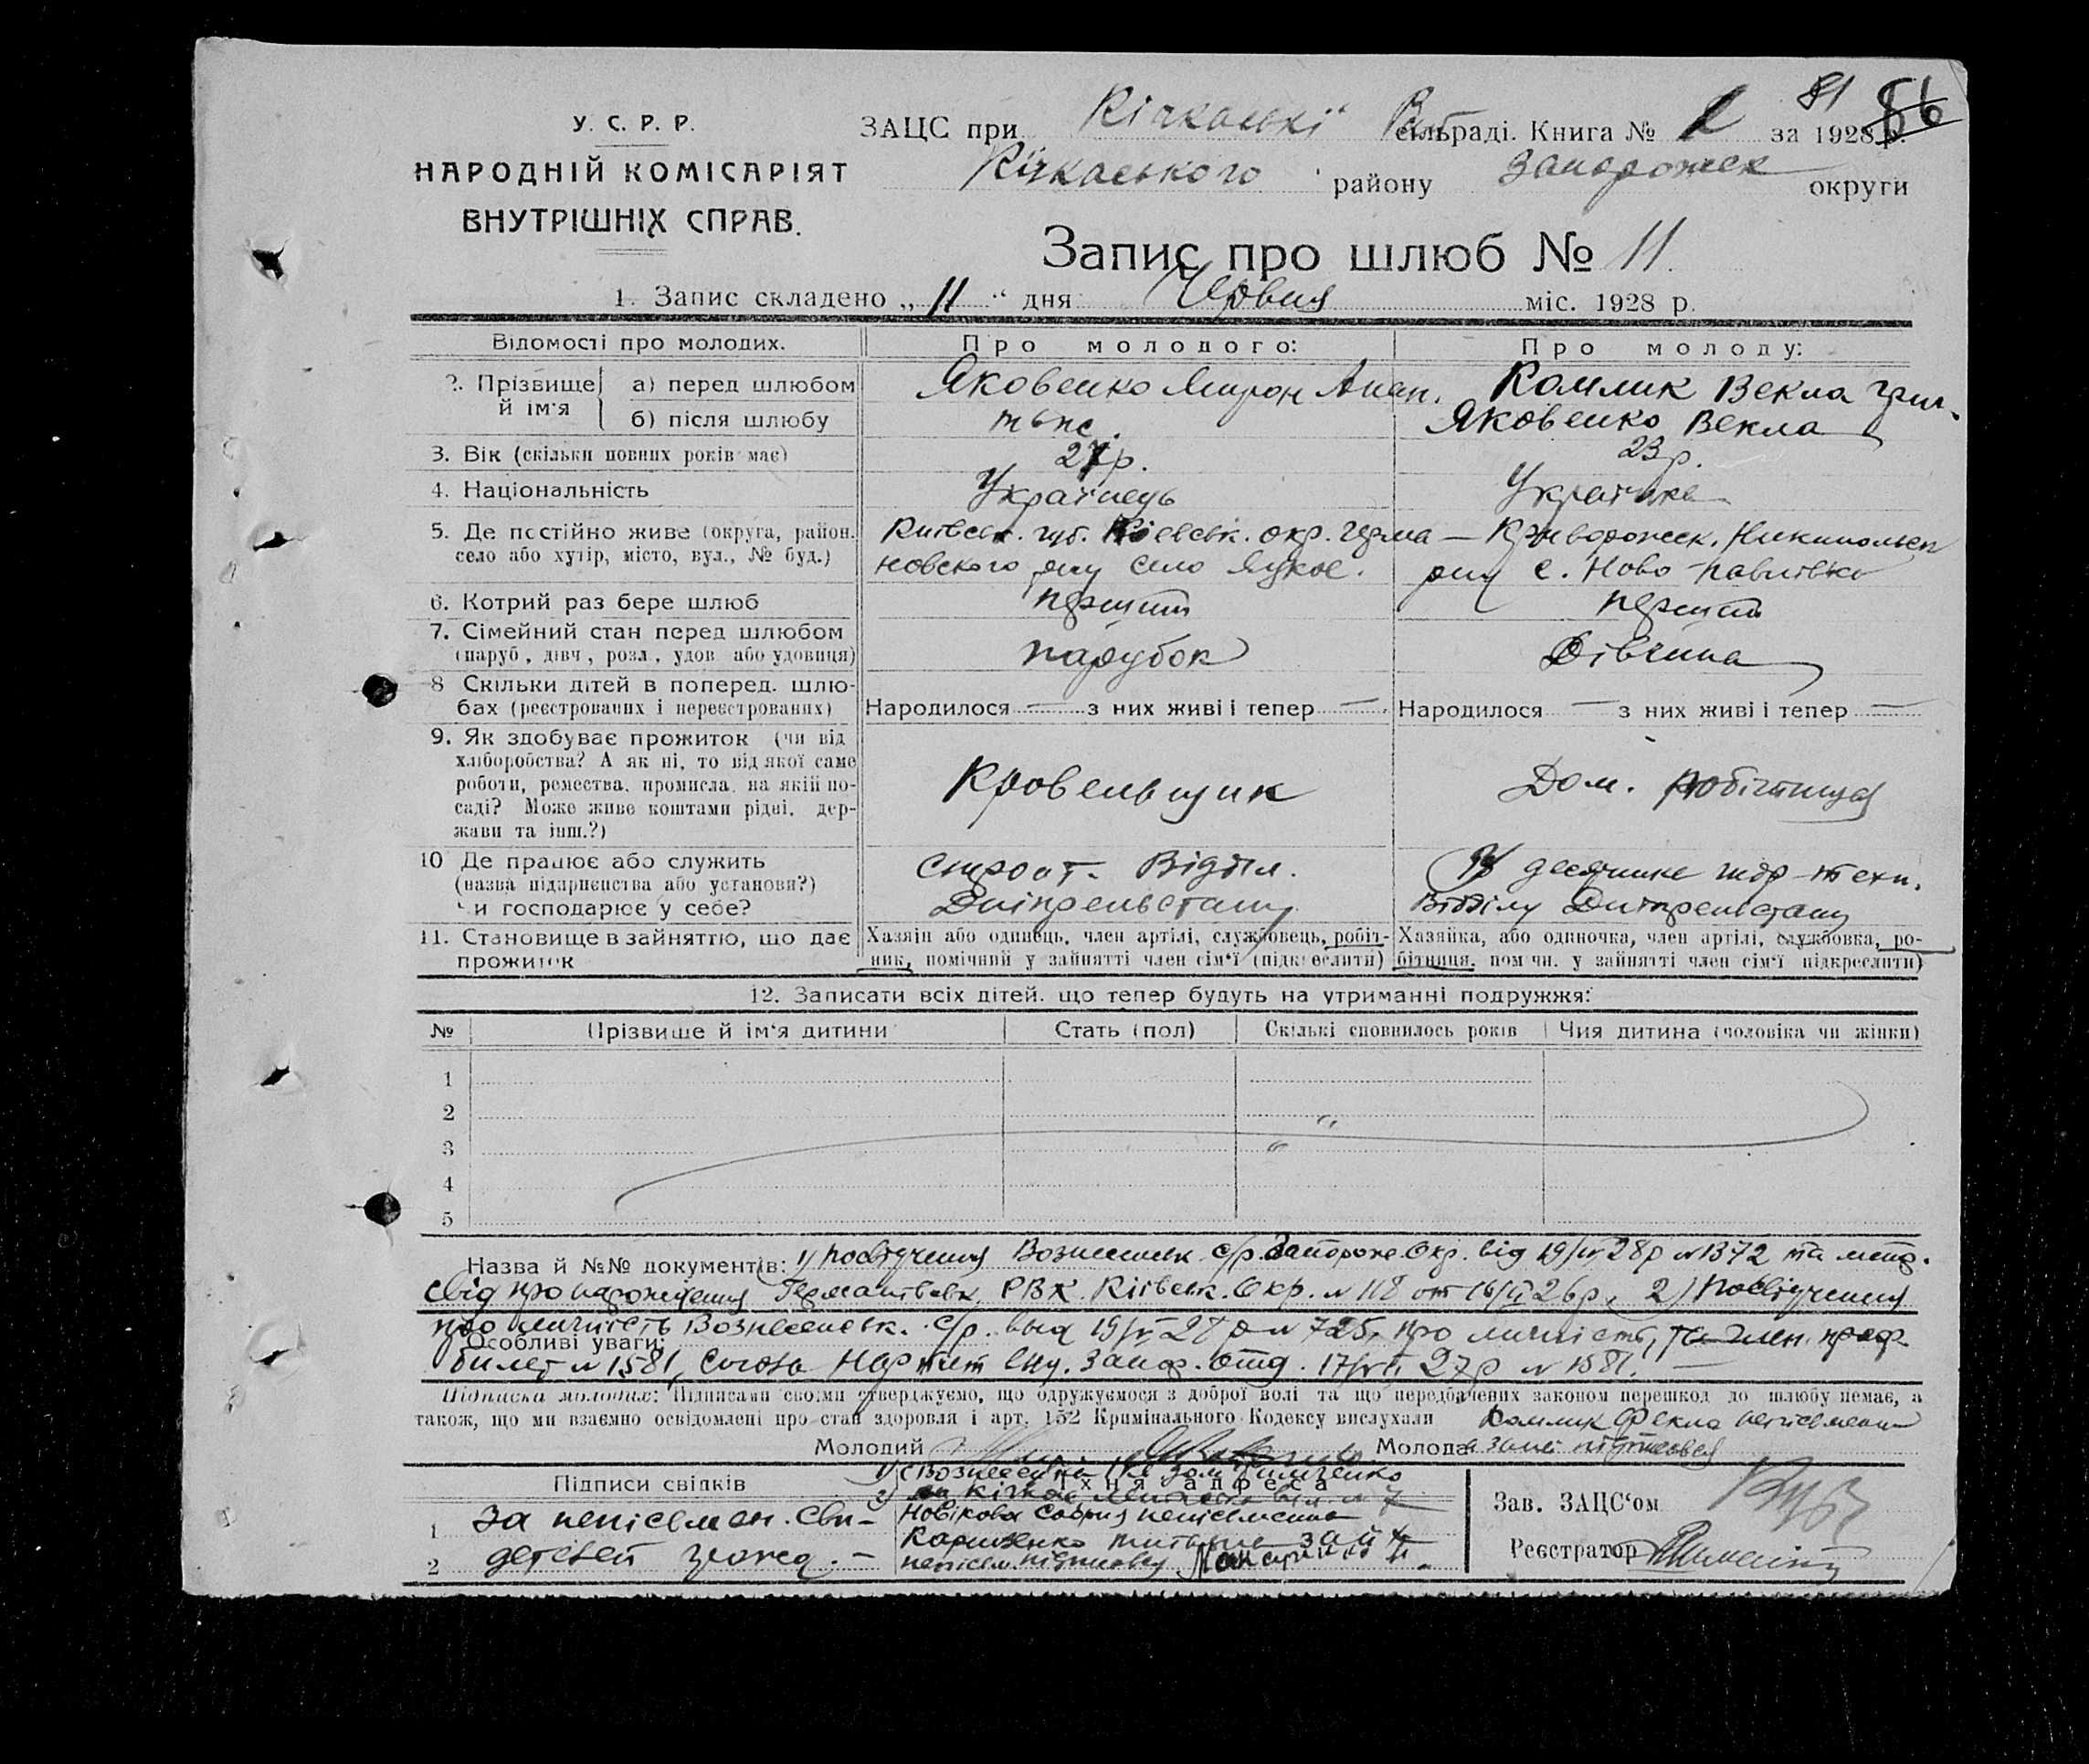 81 86
У. С. Р. Р.
НАРОДНІЙ КОМІСАРІЯТ
ВНУТРІШНІХ СПРАВ.
ЗАЦС при Кічкаській сільраді. Книга № 2 за 1928 р.
Кічкаського району Запорожск округи
Запис про шлюб № 11
1. Запис складено „ 11 “ дня Червня міс. 1928 р.
Відомості про молодих.
Про молодого:
Про молоду:
2. Прізвище й ім'я
а) перед шлюбом
Яковенко Мирон Анан.
Комлик Векла Григ.
б) після шлюбу
тьпс.
Яковенко Векла
3. Вік (скільки повних років має)
27 р.
23 р.
4. Національність
Українець
Українка
5. Де постійно живе (округа, район,
село або хутір, місто, вул., № буд.)
Київськ. губ. Кіевськ. окр. Герма-
новского р-ну село
Криворожск. Никипольск
р-ну с. Ново-Павлівка
6. Котрий раз бере шлюб
перший
перший
7. Сімейний стан перед шлюбом
(паруб, дівч, розл, удов або удовиця)
парубок
Дівчина
8 Скільки дітей в поперед. шлю-
бах (реєстрованих і нереєстрованих)
Народилося — з них живі і тепер —
Народилося — з них живі і тепер —
9. Як здобуває прожиток (чи від
хліборобства? А як ні, то від якої саме
роботи, ремества, промисла, на якій по-
саді? Може живе коштами рідні, дер-
жави та інш.?)
Кровельщик
Дом. робітниця
10 Де працює або служить
(назва підприєнства або установи?)
чи господарює у себе?
строит. Відділ.
Дніпрельстану
У десятника гидр-техн.
Відділу Дніпрельстану
11. Становище в зайняттю, що дає
прожиток
Хазяїн або одинець, член артілі, службовець, робіт-
ник, помічний у зайнятті член сім'ї (підкреслити)
Хазяйка, або одиночка, член артілі, службовка, ро-
бітниця, помічн. у зайнятті член сім'ї підкреслити)
12. Записати всіх дітей, що тепер будуть на утриманні подружжя:
№ Прізвище й ім'я дитини Стать (пол) Скількі сповнилось років Чия дитина (чоловіка чи жінки)
1
2
3
4
5
Назва й №№ документів: 1) посвідчення Вознесенськ с/р. Запорож. Окр. від 19/IV 28 р № 1372 та
свід про народження Германівськ РВК. Київськ. Окр. № 118 от 16/II 26 р, 2) Посвідчення
про личність Вознесенськ. с/р. выд 19/IV 28 р № 725, про личність, та член. проф.
Особливі уваги:
билет № 1581, Союза Нарпит № 1581. —
Підписка молодих: Підписами своїми стверджуємо, що одружуємося з доброї волі та що передбачених законом перешкод до шлюбу немає, а
також, що ми взаємно освідомлені про стан здоровля і арт. 152 Кримінального Кодексу вислухали Комлик Фекла неписьменна
Молодий Молода за неї підписався
Підписи свідків
Їхня адреса
1) с Вознесенка
2)
1 За неписьмен. сві-
Новікова Софія неписьменна
2 детелей
неписьм. підписався
Зав. ЗАЦС'ом
Реєстратор